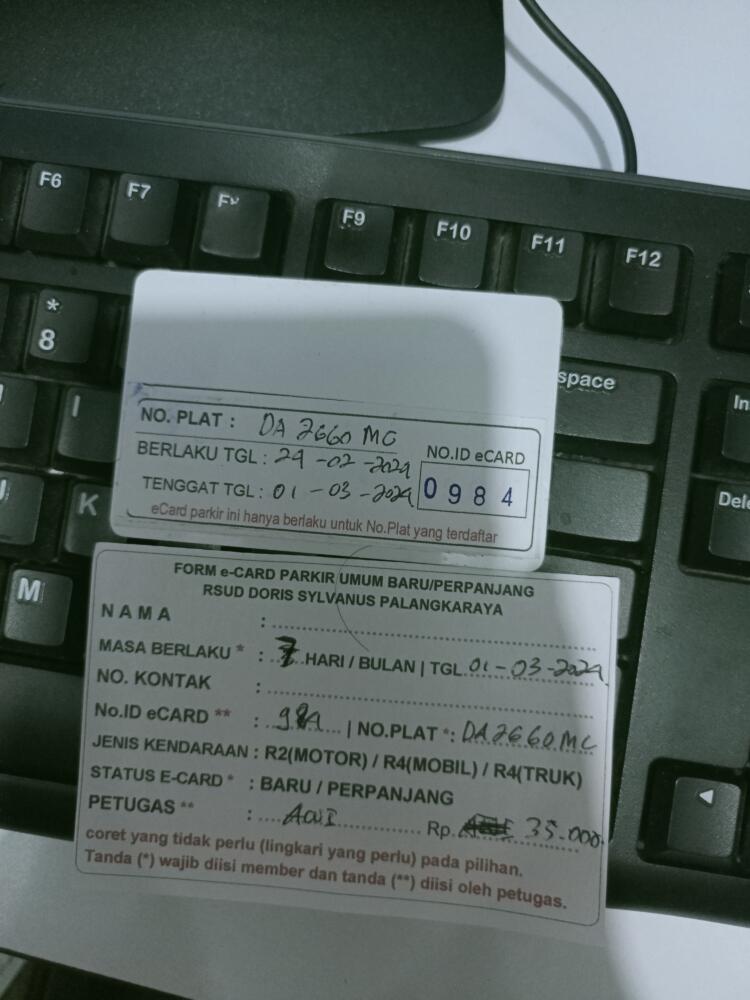 F6 F7 F9 F10 F11 F12
*
8
space
In
I
NO. PLAT : DA 2660 MC
BERLAKU TGL : 24 -02 -2024
NO.ID eCARD
TENGGAT TGL : 01 - 03 - 2024
0984
eCard parkir ini hanya berlaku untuk No.Plat yang terdaftar
K
Dele
M
FORM e-CARD PARKIR UMUM BARU/PERPANJANG
RSUD DORIS SYLVANUS PALANGKARAYA
NAMA :
MASA BERLAKU * : 7 HARI / BULAN | TGL 01-03-2024
NO. KONTAK :
No.ID eCARD ** : 984 | NO.PLAT *: DA 2660 MC
JENIS KENDARAAN : R2(MOTOR) / R4(MOBIL) / R4(TRUK)
STATUS E-CARD * : BARU / PERPANJANG
PETUGAS ** : Rp. 35.000
coret yang tidak perlu (lingkari yang perlu) pada pilihan.
Tanda (*) wajib diisi member dan tanda (**) diisi oleh petugas.